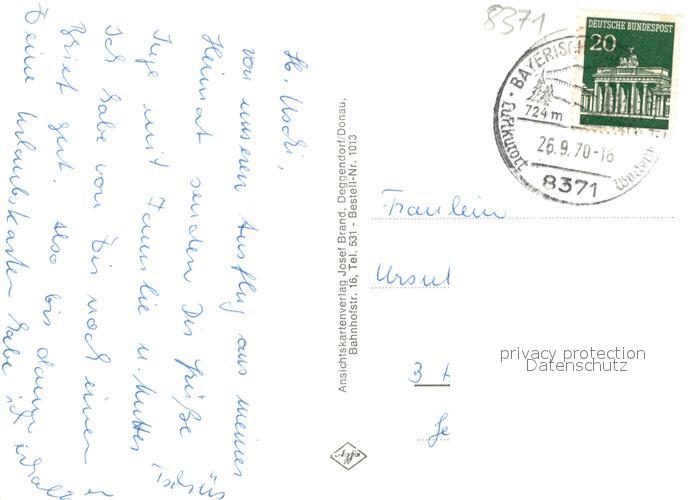 Hb. Uschi,
von unseren Ausflug aus meiner
Heimat senden Dir Grüße
Inge mit Familie u. Mutter
Tschüs
Ich habe von Dir noch einen
Brief gut. Also bis dann
Deine Urlaubskarten habe ich erhalt
Ansichtskartenverlag Josef Brand, Deggendorf/Donau,
Bahnhofstr. 16, Tel. 531 - Bestell-Nr. 1013
8371
DEUTSCHE BUNDESPOST
20
BAYERISCH
724 m
Luftkurort
26.9.70-16
8371
Fräulein
Ursul
3 H
privacy protection
Datenschutz